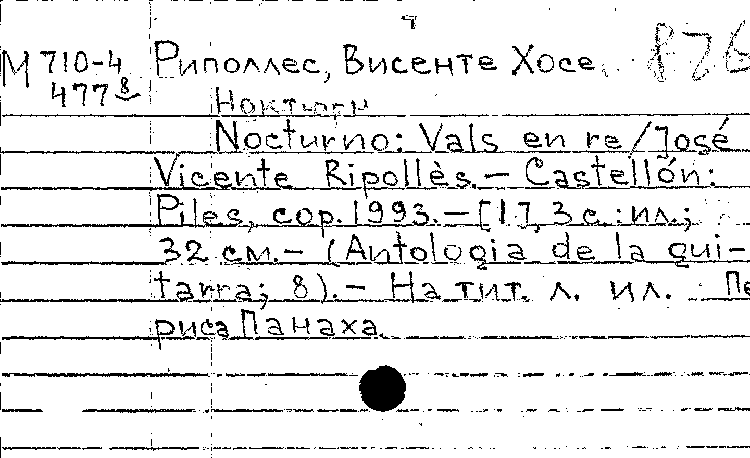 М 710-4 Риполлес, Висенте Хосе. 876
477 8 Ноктюрн
Nocturno: Vals en re/José
Vicente Ripollès.— Castellón:
Piles, cop. 1993.—[1], 3 с.: ил.;
32 см.— (Antologia de la gui-
tarra; 8).— На тит. л. ил. Пе
риса Панаха.